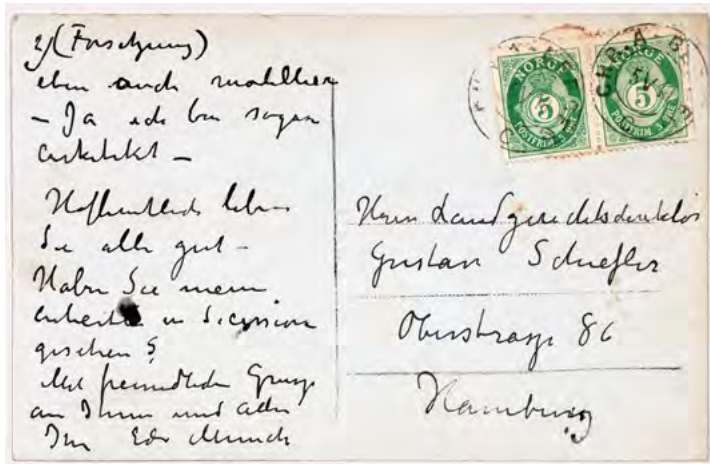 2) (Forsetzung)
eben auch modellier
– Ja ich bin sogar
arkitekt –
Hoffentlich leben
Sie alle gut –
Haben Sie meine
arbeiten in Secession
gesehen?
Mit freundlichen Gruss
an Ihnen und alle
Ihr Edv Munch
NORGE
5
POSTFRIM. 5 ØRE
NORGE
5
POSTFRIM. 5 ØRE
Herrn Landgerichtsdirektor
Gustav Schiefler
Oberstrasse 86
Hamburg